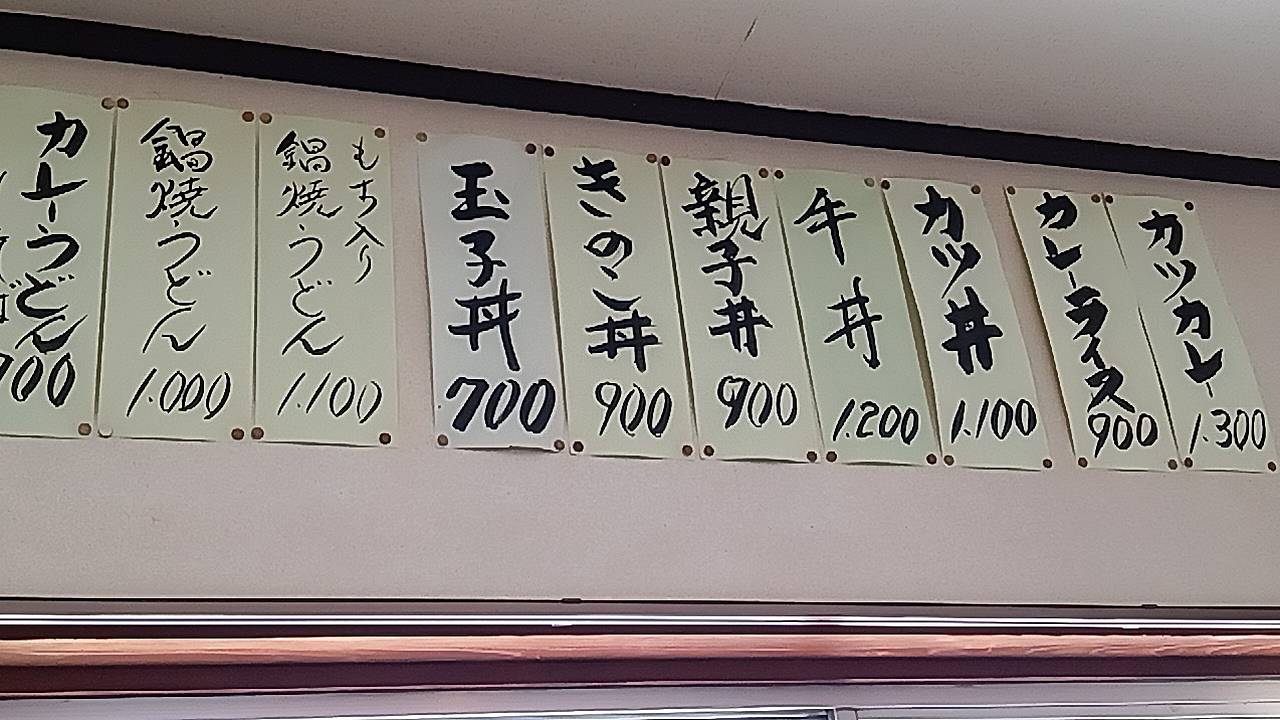 カツカレー
1.300
カレーライス
900
カツ丼
1.100
牛丼
1.200
親子丼
900
きのこ丼
900
玉子丼
700
もち入り
鍋焼うどん
1.100
鍋焼うどん
1.000
カレーうどん